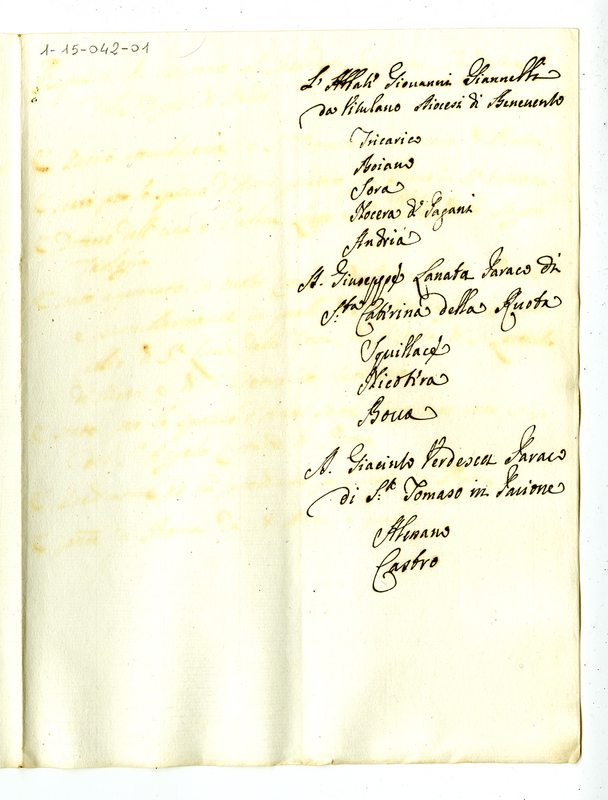 1-15-042-01
L'Abbate Giovanni Giannelli
da Vitulano Diocesi di Benevento
Tricarico
Boiano
Sora
Nocera de Pagani
Andria
A. Giuseppe Lanata Paroco di
S.ta Catirina della Ruota
Squillace
Nicotira
Bova
A. Giacinto Verdesca Paroco
di S.t Tomaso in Parione
Alesano
Castro